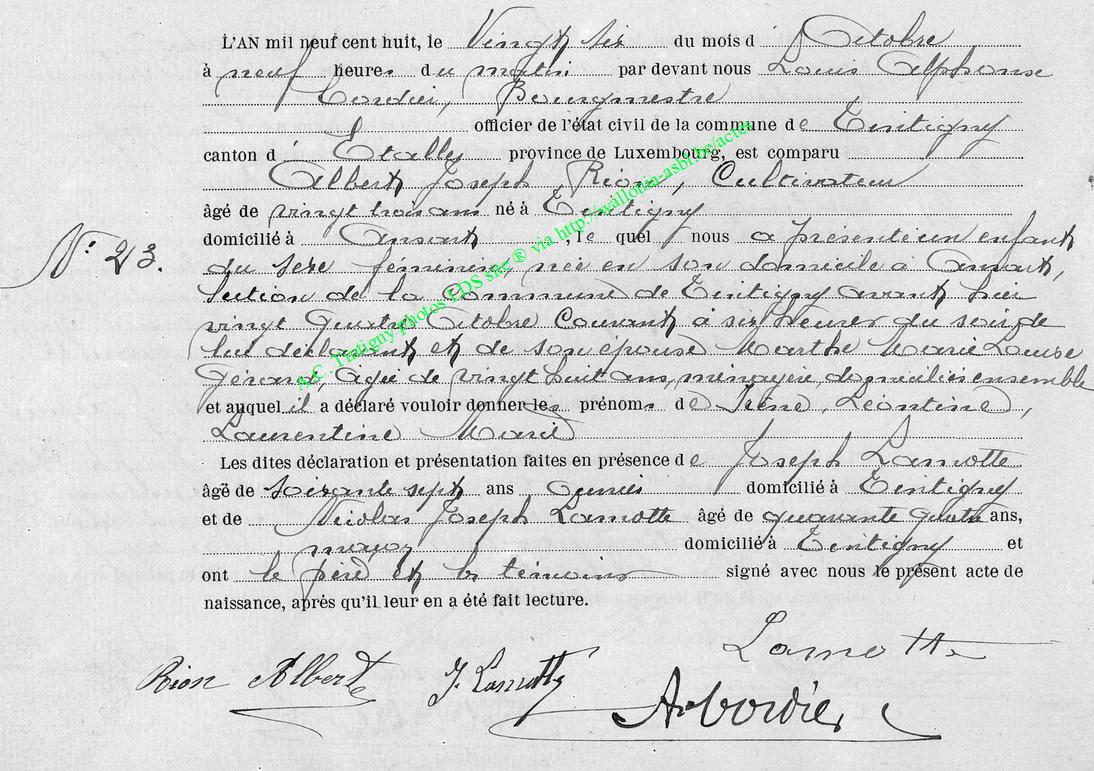 L'AN mil neuf cent huit, le Vingt six du mois d'Octobre
à neuf heures du matin par devant nous Louis Alphonse
Cordier, Bourgmestre
officier de l'état civil de la commune de Tintigny
canton d'Etalle province de Luxembourg, est comparu
Albert Joseph Rion, Cultivateur
âgé de vingt trois ans né à Tintigny
domicilié à Ansart, le quel nous a présenté un enfant
N° 23.
du sexe féminin, née en son domicile à Ansart,
Section de la commune de Tintigny avant hier
vingt quatre Octobre Courant à six heures du soir, de
lui déclarant et de son épouse Marthe Marie Louise
Gérard, âgée de vingt huit ans, ménagère, domiciliés ensemble
et auquel il a déclaré vouloir donner les prénoms de Irène, Léontine,
Laurentine Marie
Les dites déclaration et présentation faites en présence de Joseph Lamotte
âgé de soixante sept ans domicilié à Tintigny
et de Nicolas Joseph Lamotte âgé de quarante quatre ans,
domicilié à Tintigny et
ont le père et les témoins signé avec nous le présent acte de
naissance, après qu'il leur en a été fait lecture.
Lamotte
Rion Albert J. Lamotte
A. Cordier
A.C. Tintigny photos EDS sprl ® via http://wallonia-asbl.be/actes